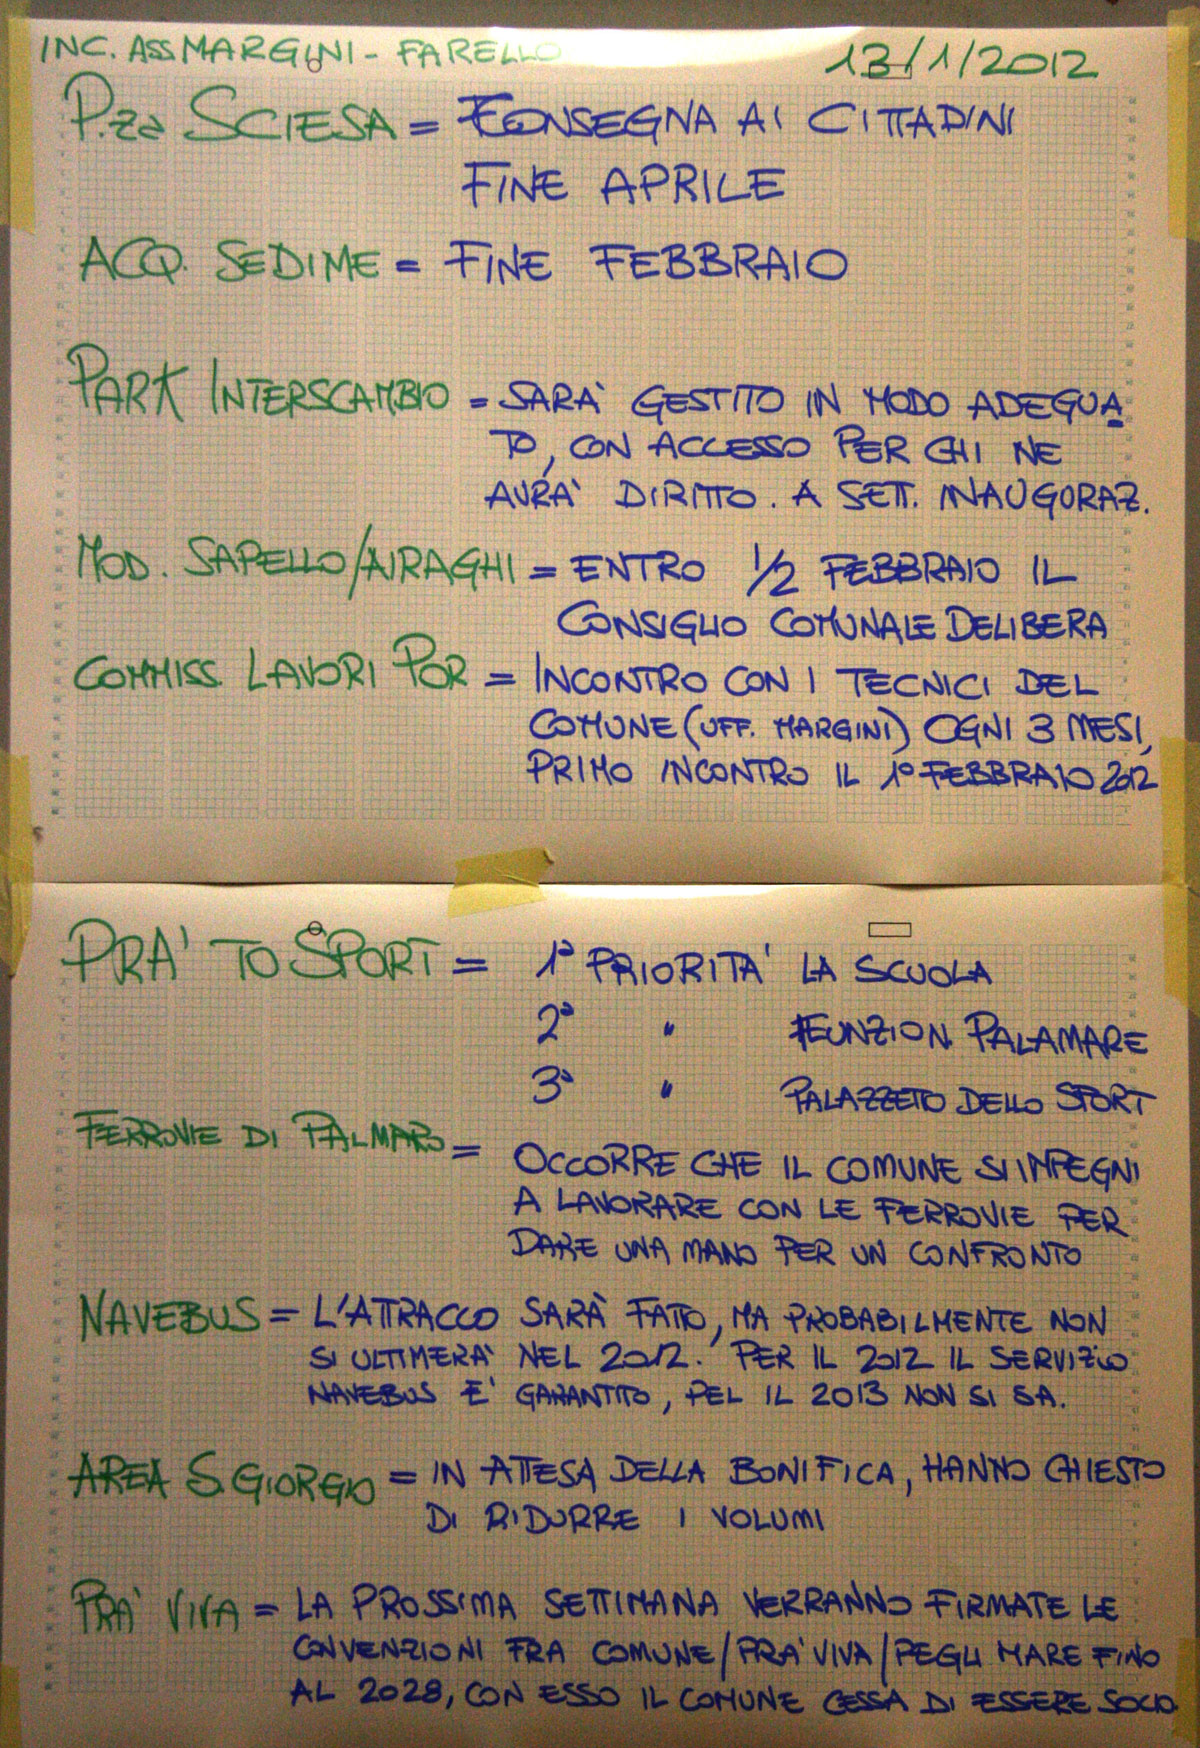 INC. ASS MARGINI - FARELLO 13/1/2012
P.za SCIESA = CONSEGNA AI CITTADINI
FINE APRILE
ACQ. SEDIME = FINE FEBBRAIO
PARK INTERSCAMBIO = SARA' GESTITO IN MODO ADEGUA
TO, CON ACCESSO PER CHI NE
AVRA' DIRITTO. A SETT. INAUGURAZ.
MOD. SAPELLO/AIRAGHI = ENTRO 1/2 FEBBRAIO IL
CONSIGLIO COMUNALE DELIBERA
COMMISS. LAVORI POR = INCONTRO CON I TECNICI DEL
COMUNE (UFF. MARGINI) OGNI 3 MESI,
PRIMO INCONTRO IL 1° FEBBRAIO 2012
PRA' TO SPORT = 1ª PRIORITA' LA SCUOLA
2ª " FUNZION. PALAMARE
3ª " PALAZZETO DELLO SPORT
FERROVIE DI PALMARO = OCCORRE CHE IL COMUNE SI IMPEGNI
A LAVORARE CON LE FERROVIE PER
DARE UNA MANO PER UN CONFRONTO
NAVEBUS = L'ATTRACCO SARÀ FATTO, MA PROBABILMENTE NON
SI ULTIMERA' NEL 2012. PER IL 2012 IL SERVIZIO
NAVEBUS E' GARANTITO, PEL IL 2013 NON SI SA.
AREA S. GIORGIO = IN ATTESA DELLA BONIFICA, HANNO CHIESTO
DI RIDURRE I VOLUMI
PRA' VIVA = LA PROSSIMA SETTIMANA VERRANNO FIRMATE LE
CONVENZIONI FRA COMUNE/PRA' VIVA/PEGLI MARE FINO
AL 2028, CON ESSO IL COMUNE CESSA DI ESSERE SOCIO